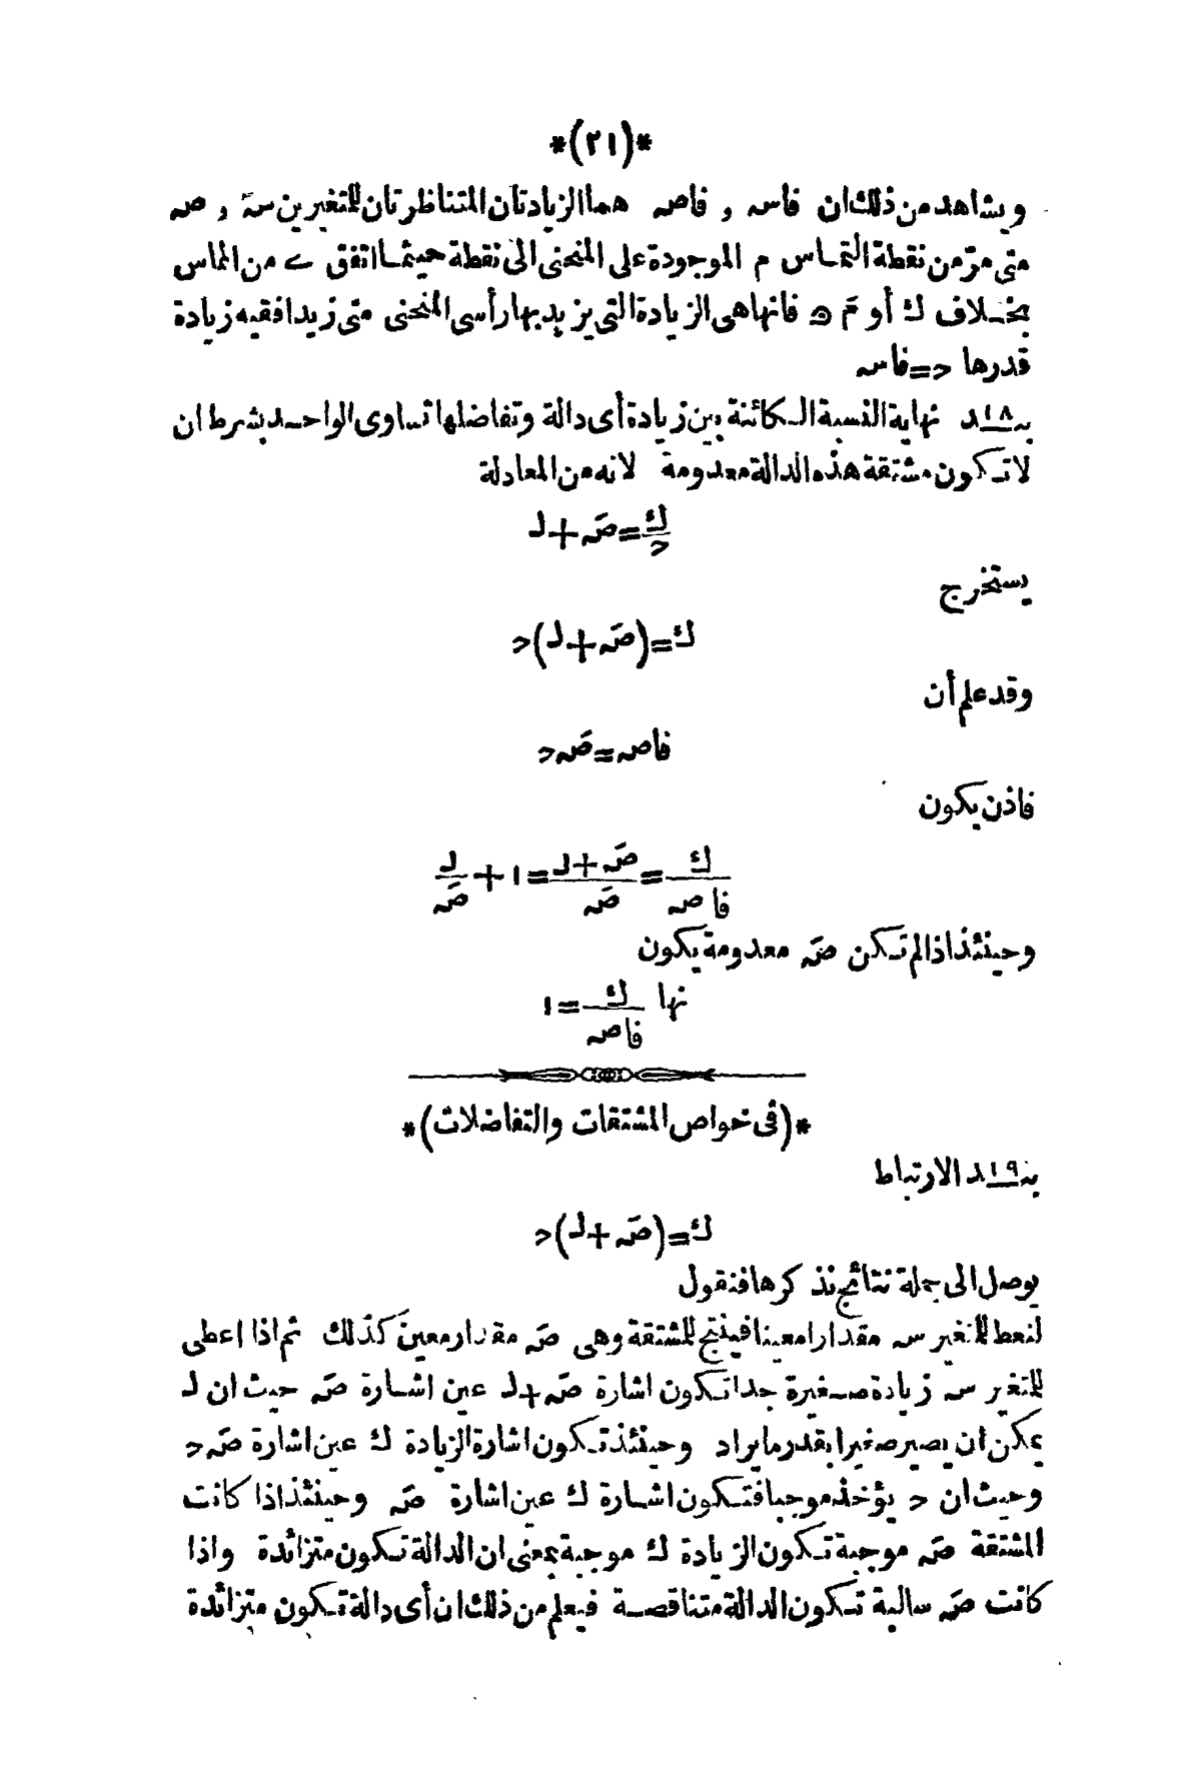 *(٢١)*
ويشاهد من ذلك ان فاسه و فاصه هما الزيادتان المتناظرتان للمتغيرين سه و صه
متى مرّ من نقطة التماس م الموجودة على المنحنى الى نقطة حيثما اتفق ے من المماس
بخلاف ك أو مَ ھ فانها هى الزيادة التى يزيد بها رأسى المنحنى متى زيد افقيه زيادة
قدرها ح=فاسه
بند ١٨ نهاية النسبة الكائنة بين زيادة أى دالة وتفاضلها تساوى الواحد بشرط ان
لا تكون مشتقة هذه الدالة معدومة لانه من المعادلة
ك/ح=صَه+لـ
يستخرج
ك=(صَه+لـ)ح
وقد علم أن
فاصه=صَه ح
فاذن يكون
ك/فاصه=(صَه+لـ)/صَه=١+لـ/صَه
وحينئذ اذا لم تكن صَه معدومة يكون
نها ك/فاصه=١
*(فى خواص المشتقات والتفاضلات)*
بند ١٩ الارتباط
ك=(صَه+لـ)ح
يوصل الى جملة نتائج نذكرها فنقول
لنعط للمتغير سه مقدارا معينا فينتج للمشتقة وهى صَه مقدار معين كذلك ثم اذا اعطى
للمتغير سه زيادة صغيرة جدا تكون اشارة صَه+لـ عين اشارة صَه حيث ان لـ
يمكن ان يصير صغيرا بقدر ما يراد وحينئذ تكون اشارة الزيادة ك عين اشارة صَه ح
وحيث ان ح يؤخذ موجبا فتكون اشارة ك عين اشارة صَه وحينئذ اذا كانت
المشتقة صَه موجبة تكون الزيادة ك موجبة بمعنى ان الدالة تكون متزائدة واذا
كانت صَه سالبة تكون الدالة متناقصة فيعلم من ذلك ان أى دالة تكون متزائدة